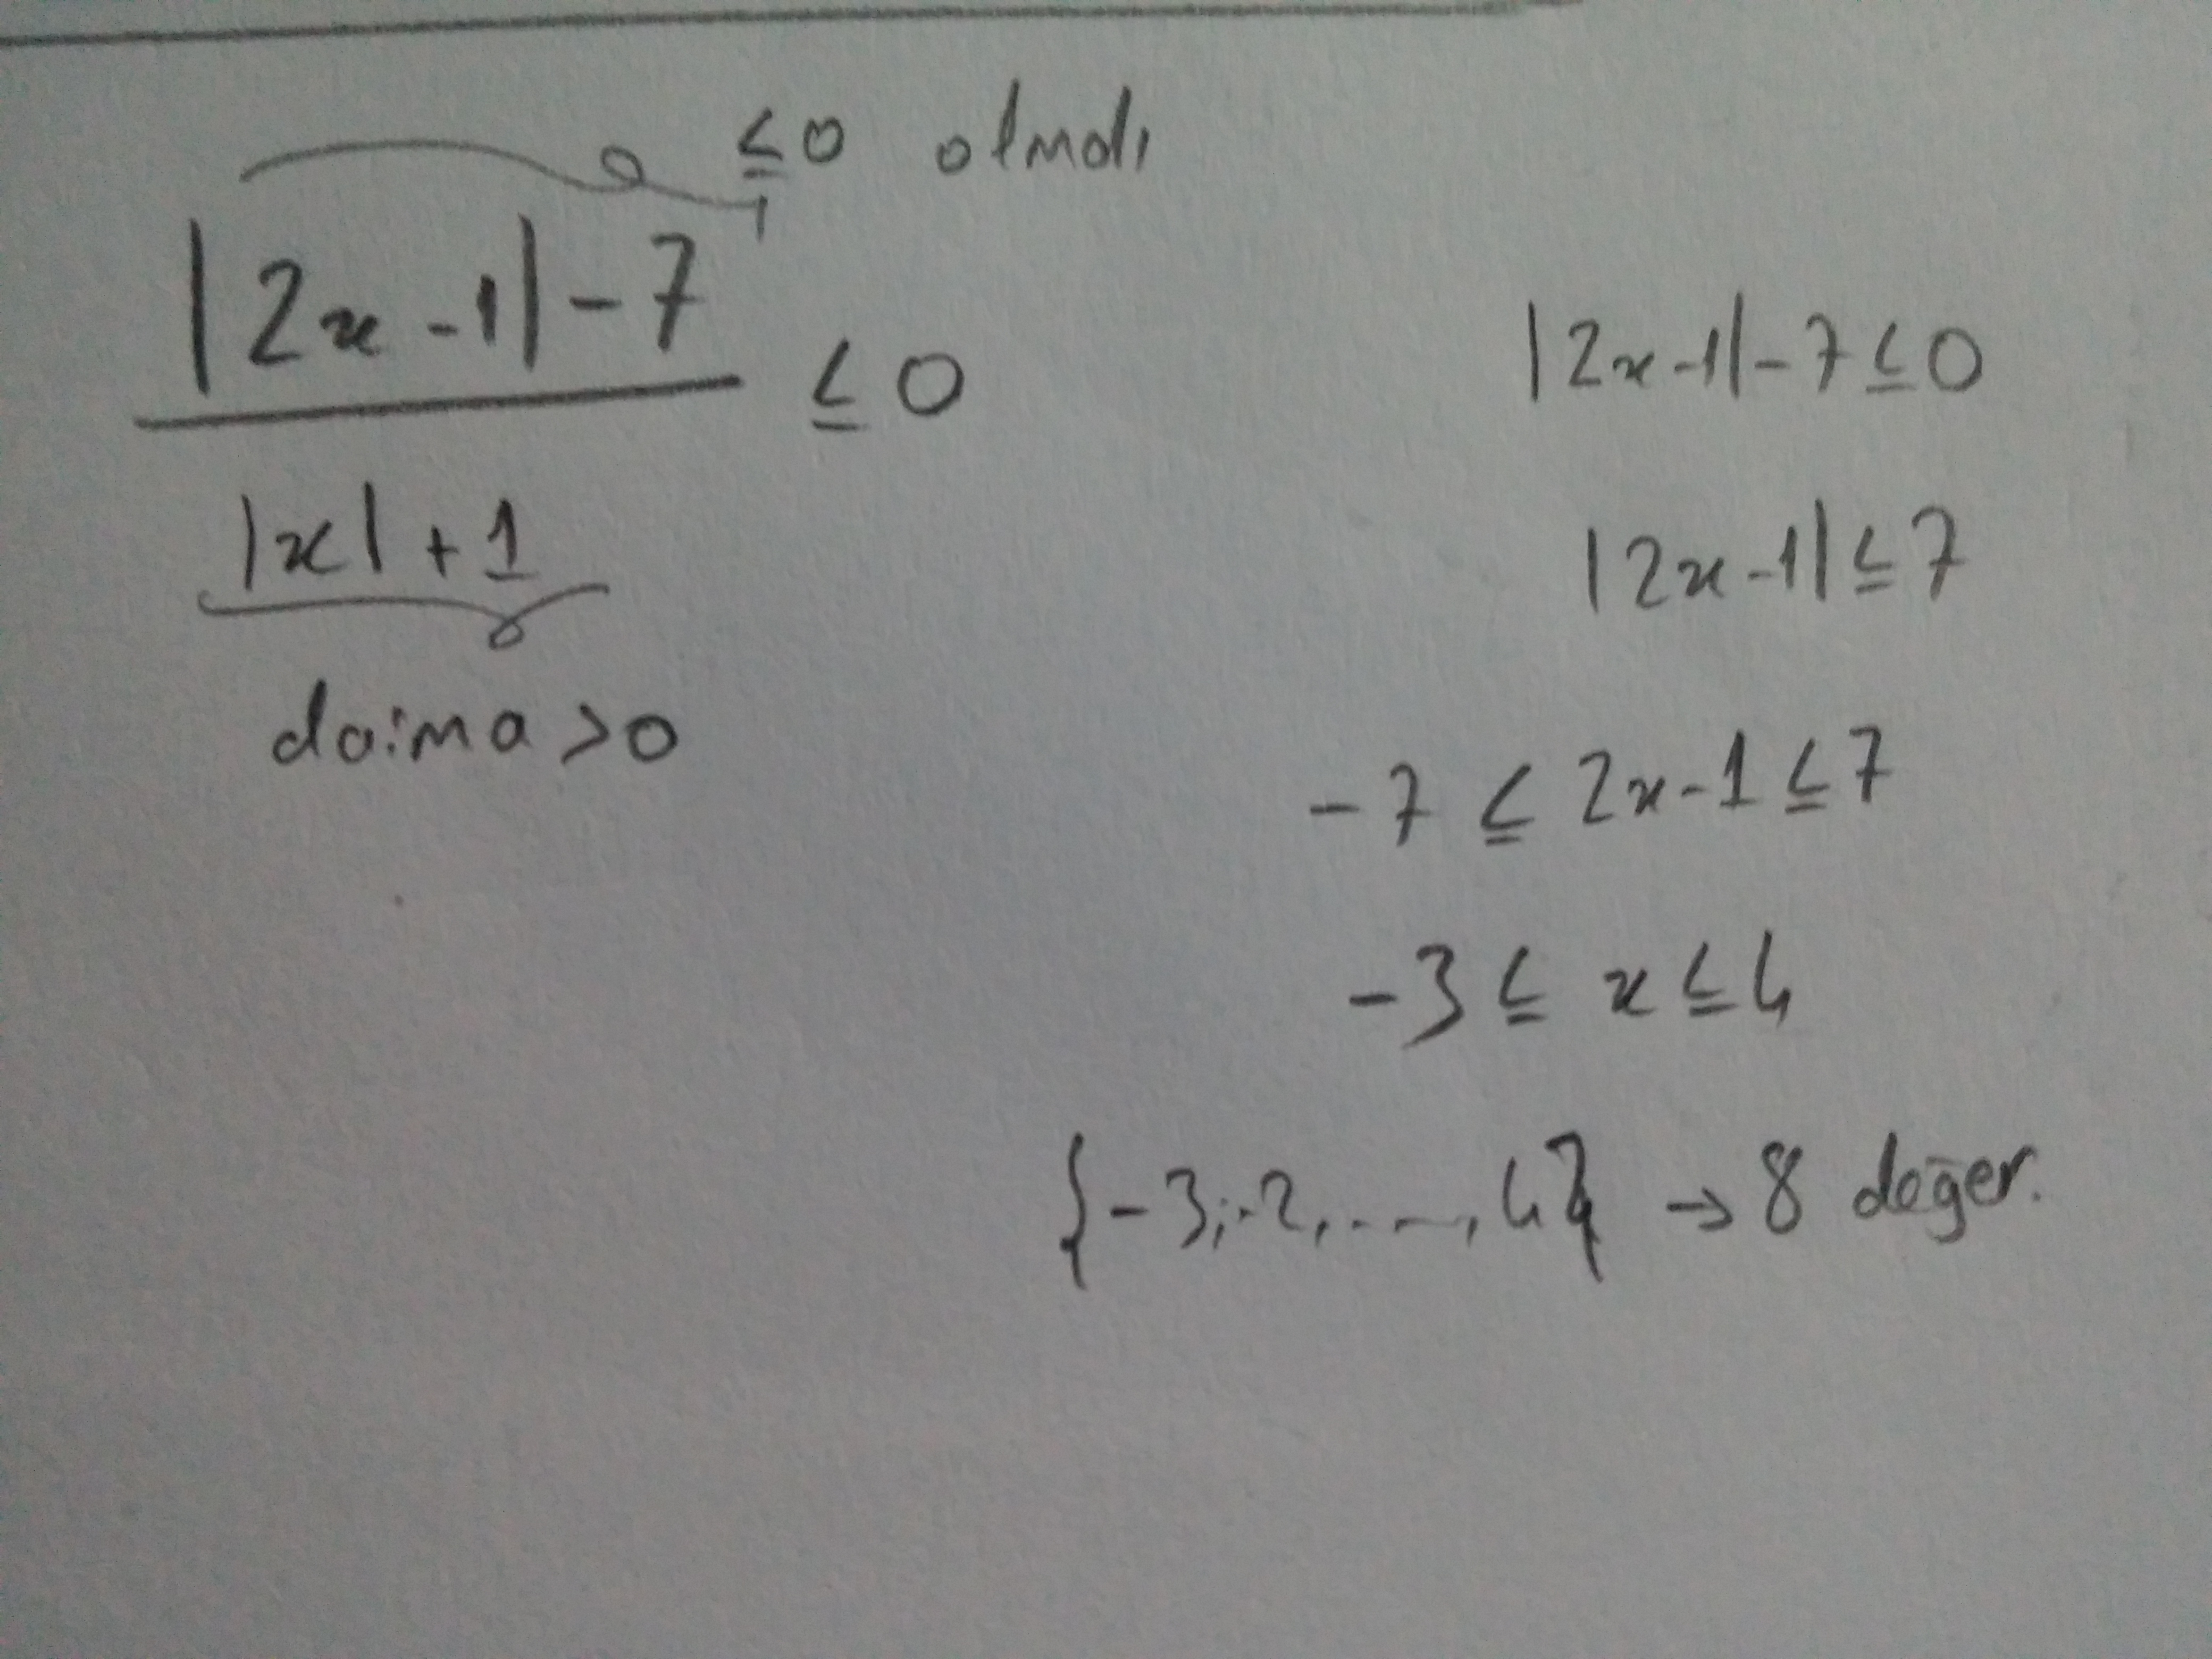 ≤0 olmalı
|2x-1|-7
≤ 0
|x| + 1
daima >0
|2x-1|-7≤0
|2x-1|≤7
-7 ≤ 2x-1≤7
-3 ≤ x ≤ 4
{-3,-2,....,4} → 8 değer.